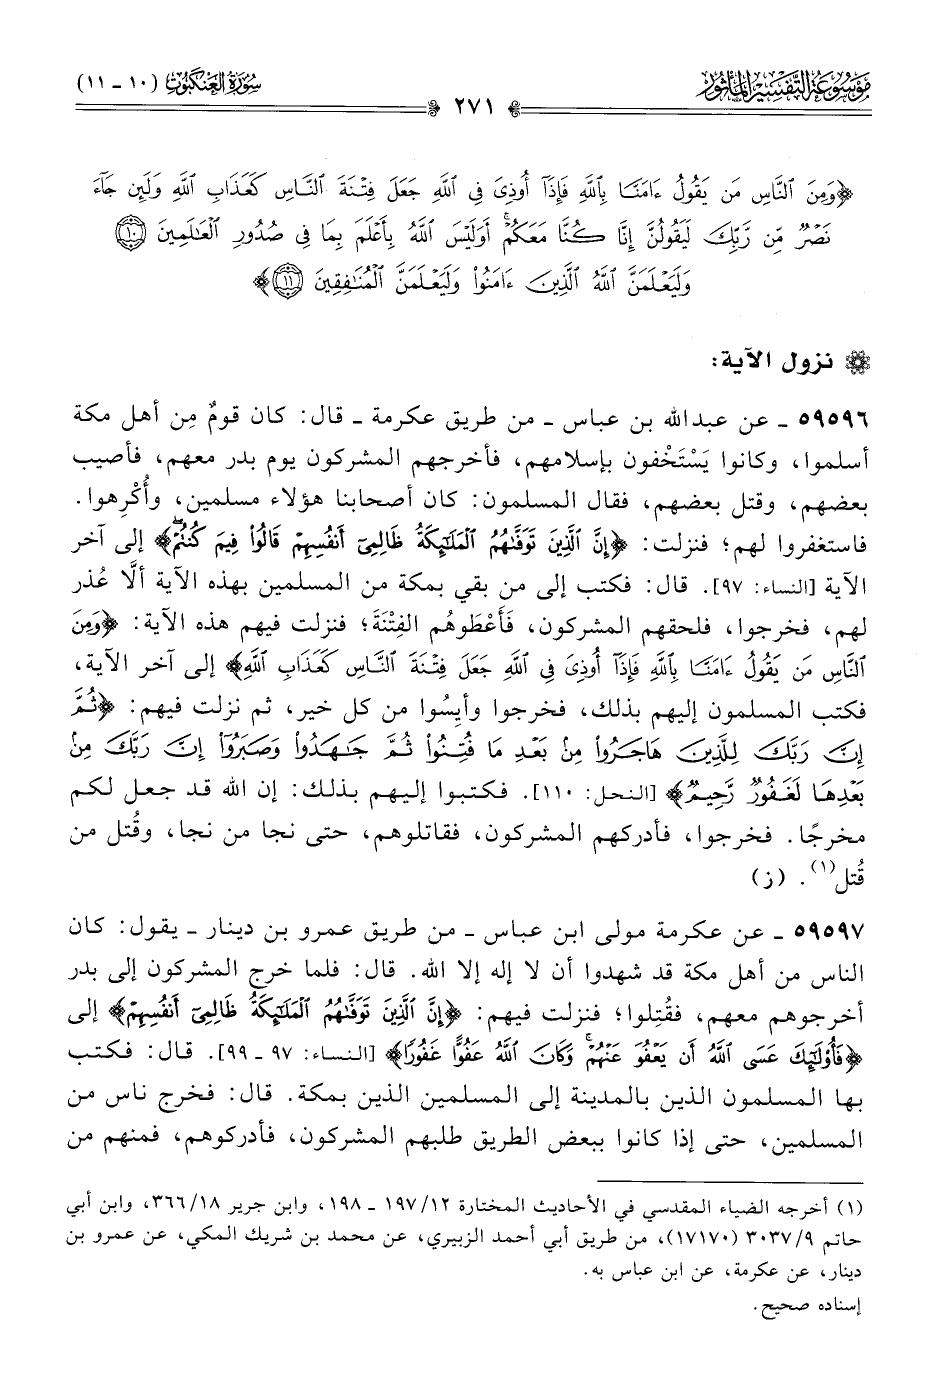 موسوعة التفسير المأثور
سورة العنكبوت (١٠ - ١١)
٢٧١
﴿وَمِنَ ٱلنَّاسِ مَن يَقُولُ ءَامَنَّا بِٱللَّهِ فَإِذَآ أُوذِىَ فِى ٱللَّهِ جَعَلَ فِتْنَةَ ٱلنَّاسِ كَعَذَابِ ٱللَّهِ وَلَئِن جَآءَ
نَصْرٌ مِّن رَّبِّكَ لَيَقُولُنَّ إِنَّا كُنَّا مَعَكُمْ ۚ أَوَلَيْسَ ٱللَّهُ بِأَعْلَمَ بِمَا فِى صُدُورِ ٱلْعَٰلَمِينَ ١٠
وَلَيَعْلَمَنَّ ٱللَّهُ ٱلَّذِينَ ءَامَنُوا۟ وَلَيَعْلَمَنَّ ٱلْمُنَٰفِقِينَ ١١﴾
نزول الآية:
٥٩٥٩٦ ـ عن عبدالله بن عباس ـ من طريق عكرمة ـ قال: كان قومٌ مِن أهل مكة
أسلموا، وكانوا يَسْتَخْفون بإسلامهم، فأخرجهم المشركون يوم بدر معهم، فأصيب
بعضهم، وقتل بعضهم، فقال المسلمون: كان أصحابنا هؤلاء مسلمين، وأُكْرِهوا.
فاستغفروا لهم؛ فنزلت: ﴿إِنَّ ٱلَّذِينَ تَوَفَّىٰهُمُ ٱلْمَلَٰٓئِكَةُ ظَالِمِىٓ أَنفُسِهِمْ قَالُوا۟ فِيمَ كُنتُمْ ۖ﴾ إلى آخر
الآية [النساء: ٩٧]. قال: فكتب إلى من بقي بمكة من المسلمين بهذه الآية ألَّا عُذر
لهم، فخرجوا، فلحقهم المشركون، فَأَعْطَوهُم الفِتْنَةَ؛ فنزلت فيهم هذه الآية: ﴿وَمِنَ
ٱلنَّاسِ مَن يَقُولُ ءَامَنَّا بِٱللَّهِ فَإِذَآ أُوذِىَ فِى ٱللَّهِ جَعَلَ فِتْنَةَ ٱلنَّاسِ كَعَذَابِ ٱللَّهِ﴾ إلى آخر الآية،
فكتب المسلمون إليهم بذلك، فخرجوا وأيِسُوا من كل خير، ثم نزلت فيهم: ﴿ثُمَّ
إِنَّ رَبَّكَ لِلَّذِينَ هَاجَرُوا۟ مِنۢ بَعْدِ مَا فُتِنُوا۟ ثُمَّ جَٰهَدُوا۟ وَصَبَرُوٓا۟ إِنَّ رَبَّكَ مِنۢ
بَعْدِهَا لَغَفُورٌ رَّحِيمٌ﴾ [النحل: ١١٠]. فكتبوا إليهم بذلك: إن الله قد جعل لكم
مخرجًا. فخرجوا، فأدركهم المشركون، فقاتلوهم، حتى نجا من نجا، وقُتل من
قُتل(١). (ز)
٥٩٥٩٧ ـ عن عكرمة مولى ابن عباس ـ من طريق عمرو بن دينار ـ يقول: كان
الناس من أهل مكة قد شهدوا أن لا إله إلا الله. قال: فلما خرج المشركون إلى بدر
أخرجوهم معهم، فقُتِلوا؛ فنزلت فيهم: ﴿إِنَّ ٱلَّذِينَ تَوَفَّىٰهُمُ ٱلْمَلَٰٓئِكَةُ ظَالِمِىٓ أَنفُسِهِمْ﴾ إلى
﴿فَأُو۟لَٰٓئِكَ عَسَى ٱللَّهُ أَن يَعْفُوَ عَنْهُمْ ۚ وَكَانَ ٱللَّهُ عَفُوًّا غَفُورًا﴾ [النساء: ٩٧ ـ ٩٩]. قال: فكتب
بها المسلمون الذين بالمدينة إلى المسلمين الذين بمكة. قال: فخرج ناس من
المسلمين، حتى إذا كانوا ببعض الطريق طلبهم المشركون، فأدركوهم، فمنهم من
(١) أخرجه الضياء المقدسي في الأحاديث المختارة ١٢/ ١٩٧ ـ ١٩٨، وابن جرير ١٨/ ٣٦٦، وابن أبي
حاتم ٩/ ٣٠٣٧ (١٧١٧٠)، من طريق أبي أحمد الزبيري، عن محمد بن شريك المكي، عن عمرو بن
دينار، عن عكرمة، عن ابن عباس به.
إسناده صحيح.